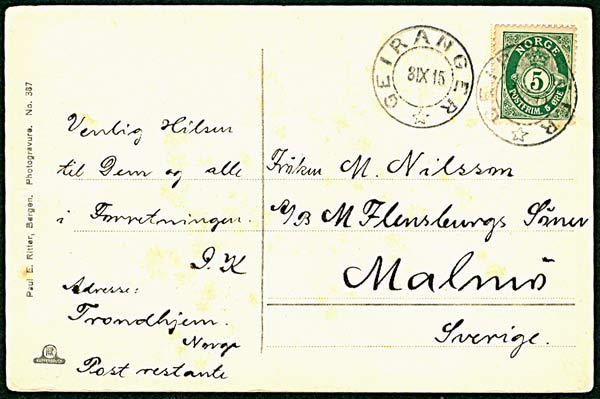 Paul E. Ritter, Bergen. Photogravure. No. 387
Venlig Hilsen
til Dem og alle
i Forretningen.
Adresse:
Trondhjem.
Norge
Post restante
GEIRANGER
8 IX 15
NORGE
5
POSTFRIM. 5 ØRE
Frøken M. Nilsson
A/B M Flensburgs Söner
Malmö
Sverige.